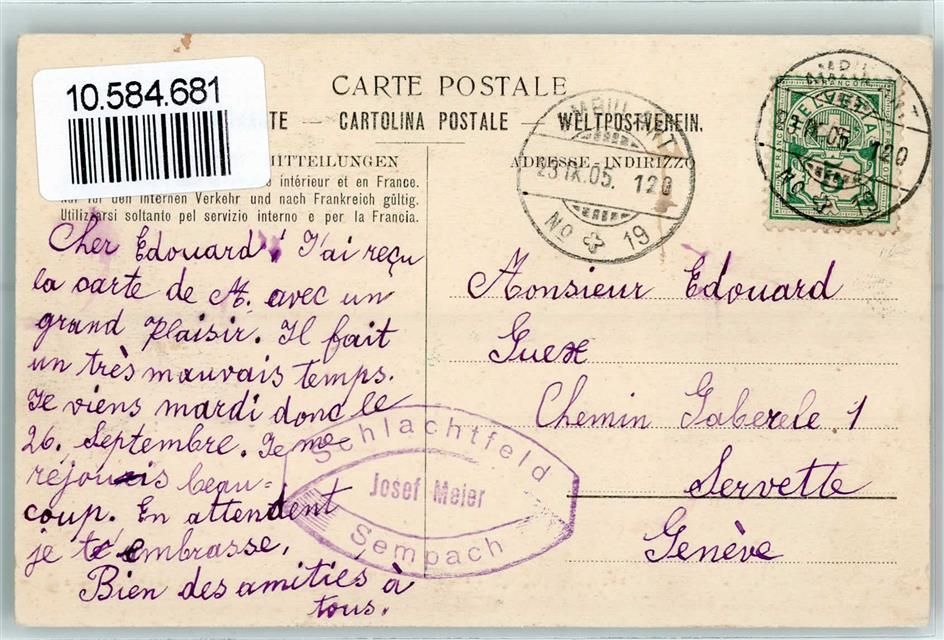 10.584.681
CARTE POSTALE
TE — CARTOLINA POSTALE — WELTPOSTVEREIN.
MITTEILUNGEN
ADRESSE-INDIRIZZO
intérieur et en France.
Nur für den internen Verkehr und nach Frankreich gültig.
Utilizzarsi soltanto pel servizio interno e per la Francia.
AMBULANT
23.IX.05. 120
No 19
AMBULANT
23.IX.05. 120
No 19
HELVETIA
FRANCO
5
Cher Edouard! J'ai reçu
la carte de M. avec un
grand plaisir. Il fait
un très mauvais temps.
Je viens mardi donc le
26. Septembre. Je me
réjouis beau-
coup. En attendent
je t'embrasse,
Bien des amities à
tous.
Monsieur Edouard
Guex
Chemin 1
Servette
Genève
Schlachtfeld
Josef Meier
Sempach